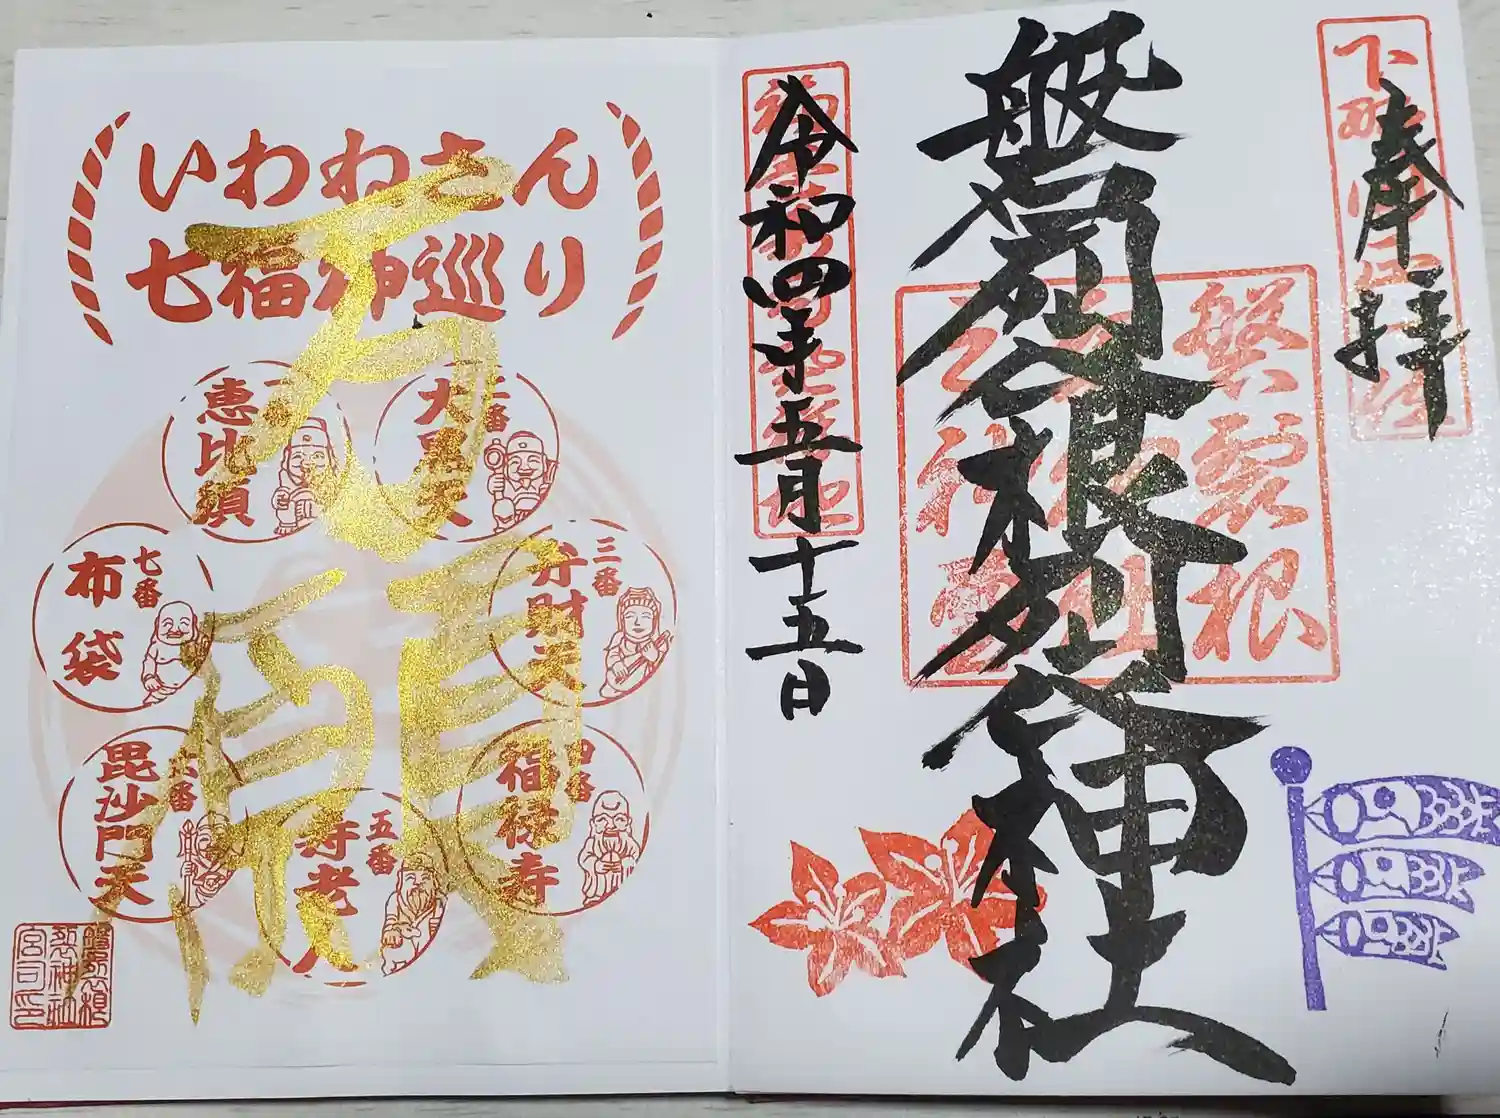 奉拝
磐裂根裂神社
磐裂根
令和四年五月十五日
いわねさん
七福神巡り
恵比須
大黒天
三番
弁財天
四番
福禄寿
五番
寿老人
六番
毘沙門天
七番
布袋
願
磐裂根
裂神社
宮司印